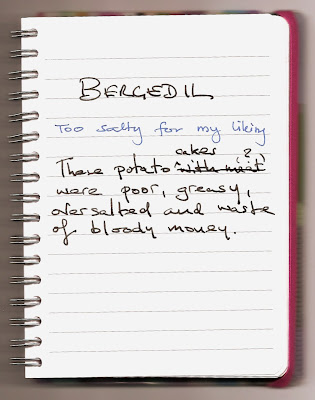 BERGEDIL
Too salty for my liking
cakes (?)
These potato with meat
were poor, greasy,
oversalted and waste
of bloody money.